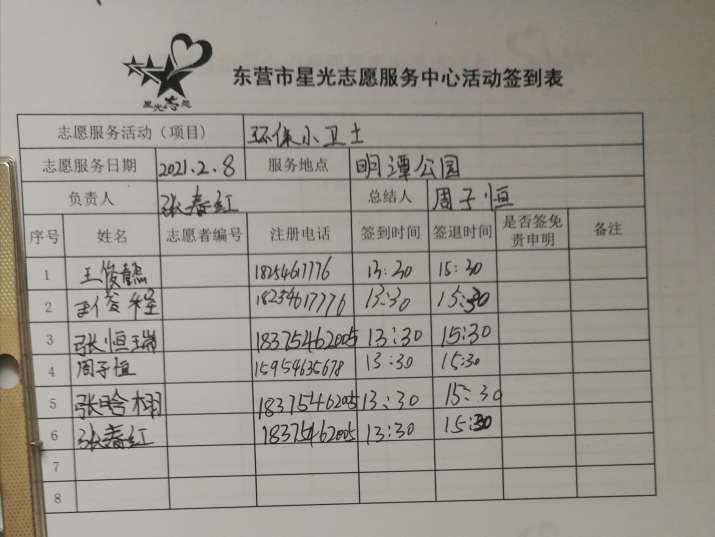 星光志愿
东营市星光志愿服务中心活动签到表
志愿服务活动（项目） 环保小卫士
志愿服务日期 2021.2.8 服务地点 明潭公园
负责人 张春红 总结人 周子恒
序号 姓名 志愿者编号 注册电话 签到时间 签退时间 是否签免责申明 备注
1 王俊懿 1825461776 13:30 15:30
2 王俊程 18254617776 13:30 15:30
3 张恒瑞 18375462005 13:30 15:30
4 周子恒 15954635678 13:30 15:30
5 张晗栩 18375462005 13:30 15:30
6 张春红 18375462005 13:30 15:30
7
8